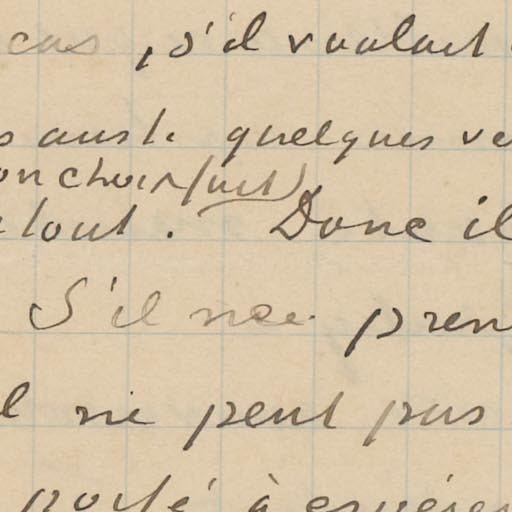 cas, s'il voulait
aussi quelques ve
on choix (met)
tout. Donc il
S'il me pren
l ne peut pas
porté à espérer